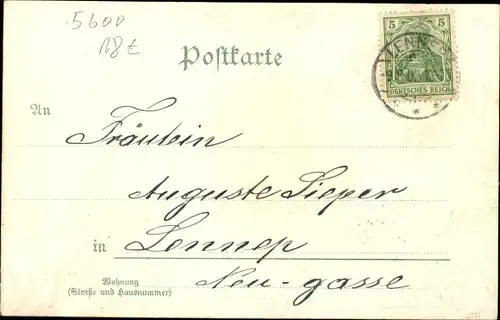 5600
18 £
Postkarte
5
5
DEUTSCHES REICH
LENNEP
An
Fräulein
Auguste Sieper
in Lennep
Neu-gasse
Wohnung
(Straße und Hausnummer)